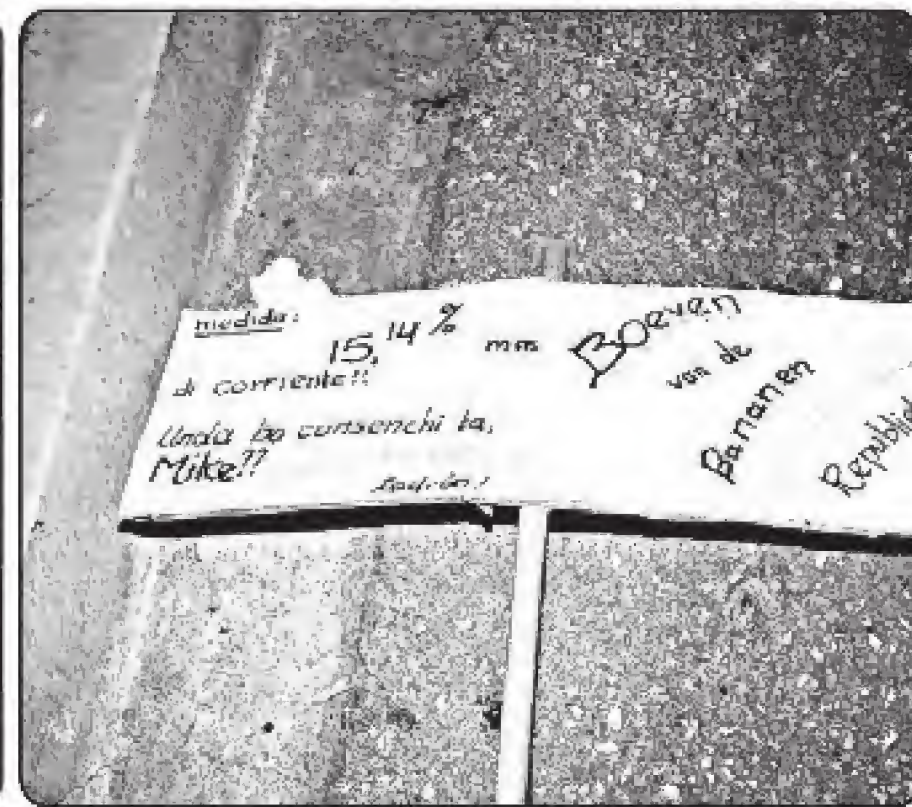 medida:
15,14%
di corriente!!
Unda bo consenchi ta,
Mike!?
Ladrón!
Boeven
van de
Bananen
Republiek